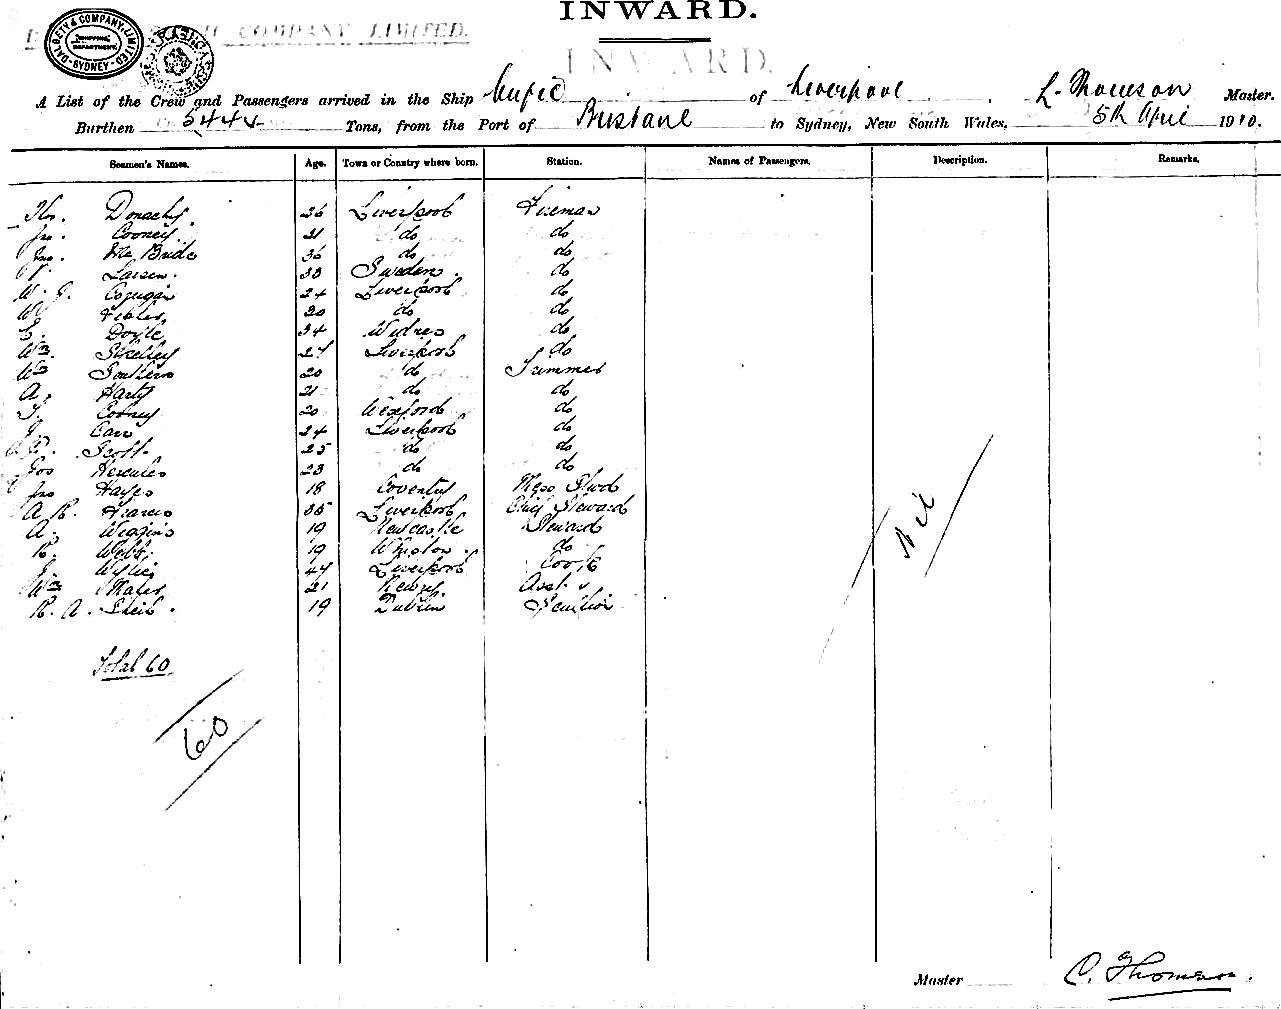 INWARD.
DALGETY & COMPANY, LIMITED
SHIPPING DEPARTMENT
SYDNEY
COMPANY LIMITED.
INWARD.
A List of the Crew and Passengers arrived in the Ship Cufic of Liverpool Master.
Burthen 5444 Tons, from the Port of Brisbane to Sydney, New South Wales, 5th April 1910.
Seamen's Names. Age. Town or Country where born. Station. Names of Passengers. Description. Remarks.
Thos. Donachy 36 Liverpool Fireman
Jno. Cooney 21 do do
Jno. McBride 36 do do
Larsen 33 Sweden do
W. J. 24 Liverpool do
W 20 do do
Doyle 34 Widnes do
Wm. Skelley 27 Liverpool do
Wm Southern 20 do Trimmer
A. Harty 21 do do
T. Cooney 20 Wexford do
J. Carr 24 Liverpool do
Scott 25 do do
Jos Hercules 23 do do
Jno Hayes 18 Coventry Mess Stwd
A. R. 35 Liverpool Chief Steward
A. Wiggins 19 Newcastle Steward
R. Webb 19 Whiston do
J. Wylie 47 Liverpool Cook
Wm 21 Asst "
R. A. 19 Dublin
Nil
Total 60
60
Master C. Thomson.